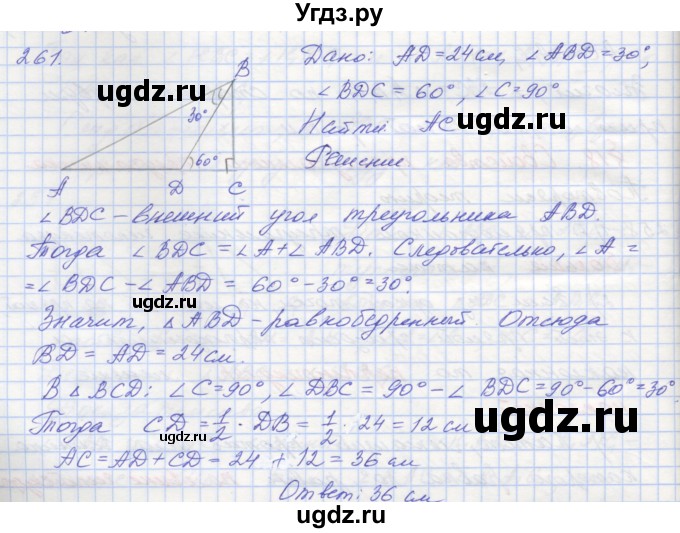 Угдз.ру
261.
Дано: AD = 24 см, ∠ABD = 30°,
∠BDC = 60°, ∠C = 90°
Найти: AC
Решение
B
30°
60°
A D C
ugdz.ru
ugdz.ru
∠BDC – внешний угол треугольника ABD.
Тогда ∠BDC = ∠A + ∠ABD. Следовательно, ∠A =
= ∠BDC – ∠ABD = 60° – 30° = 30°.
ugdz.ru
Значит, △ABD – равнобедренный. Отсюда
BD = AD = 24 см.
ugdz.ru
В △BCD: ∠C = 90°, ∠DBC = 90° – ∠BDC = 90° – 60° = 30°
Тогда CD = 1/2 · DB = 1/2 · 24 = 12 см
ugdz.ru
ugdz.ru
AC = AD + CD = 24 + 12 = 36 см
Ответ: 36 см.
ugdz.ru